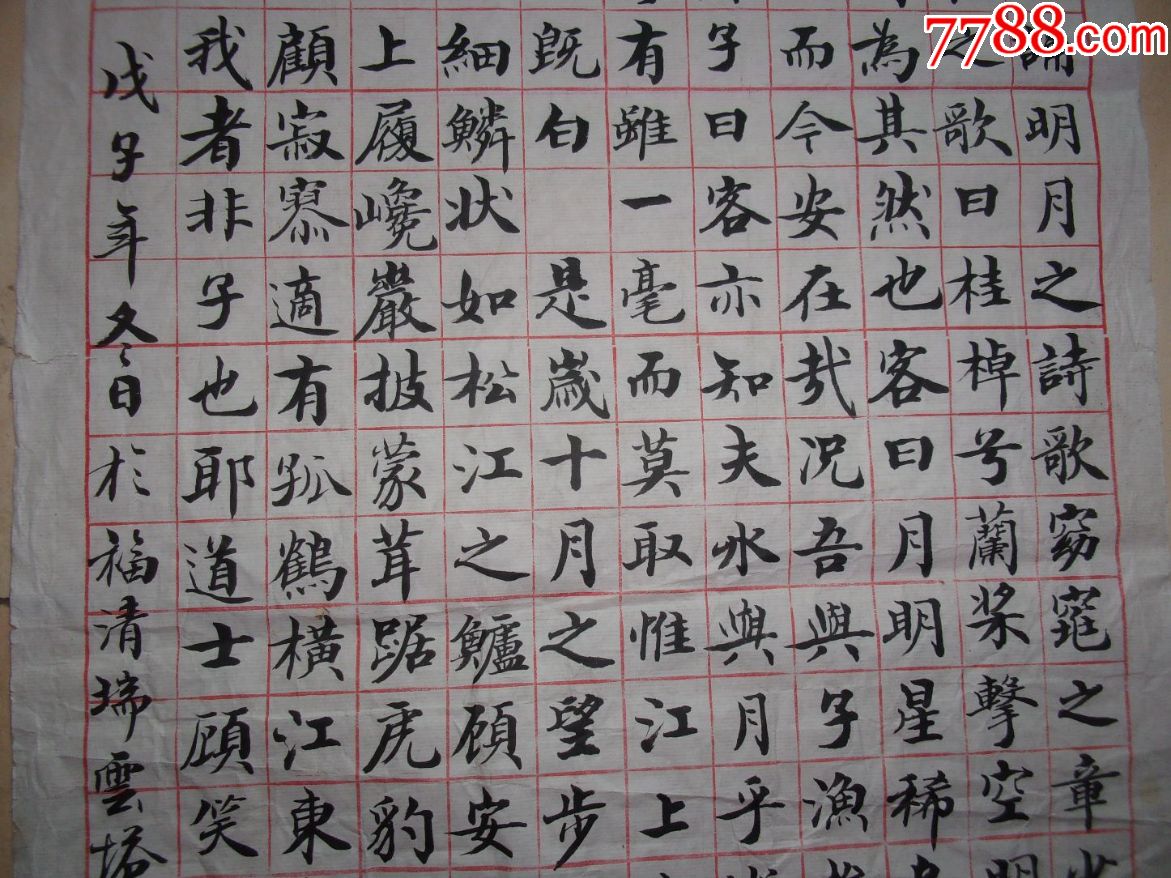 7788.com
誦明月之詩歌窈窕之章少
之歌曰桂棹兮蘭桨擊空明
為其然也客曰月明星稀烏
而今安在哉況吾與子漁
子曰客亦知夫水與月乎
有雖一毫而莫取惟江上
既白是歲十月之望步
細鱗状如松江之鱸顧安
上履巉巖披蒙茸踞虎豹
顧寂寥適有孤鶴橫江東
我者非子也耶道士顧笑
戊子年冬日於福清瑞雲塔